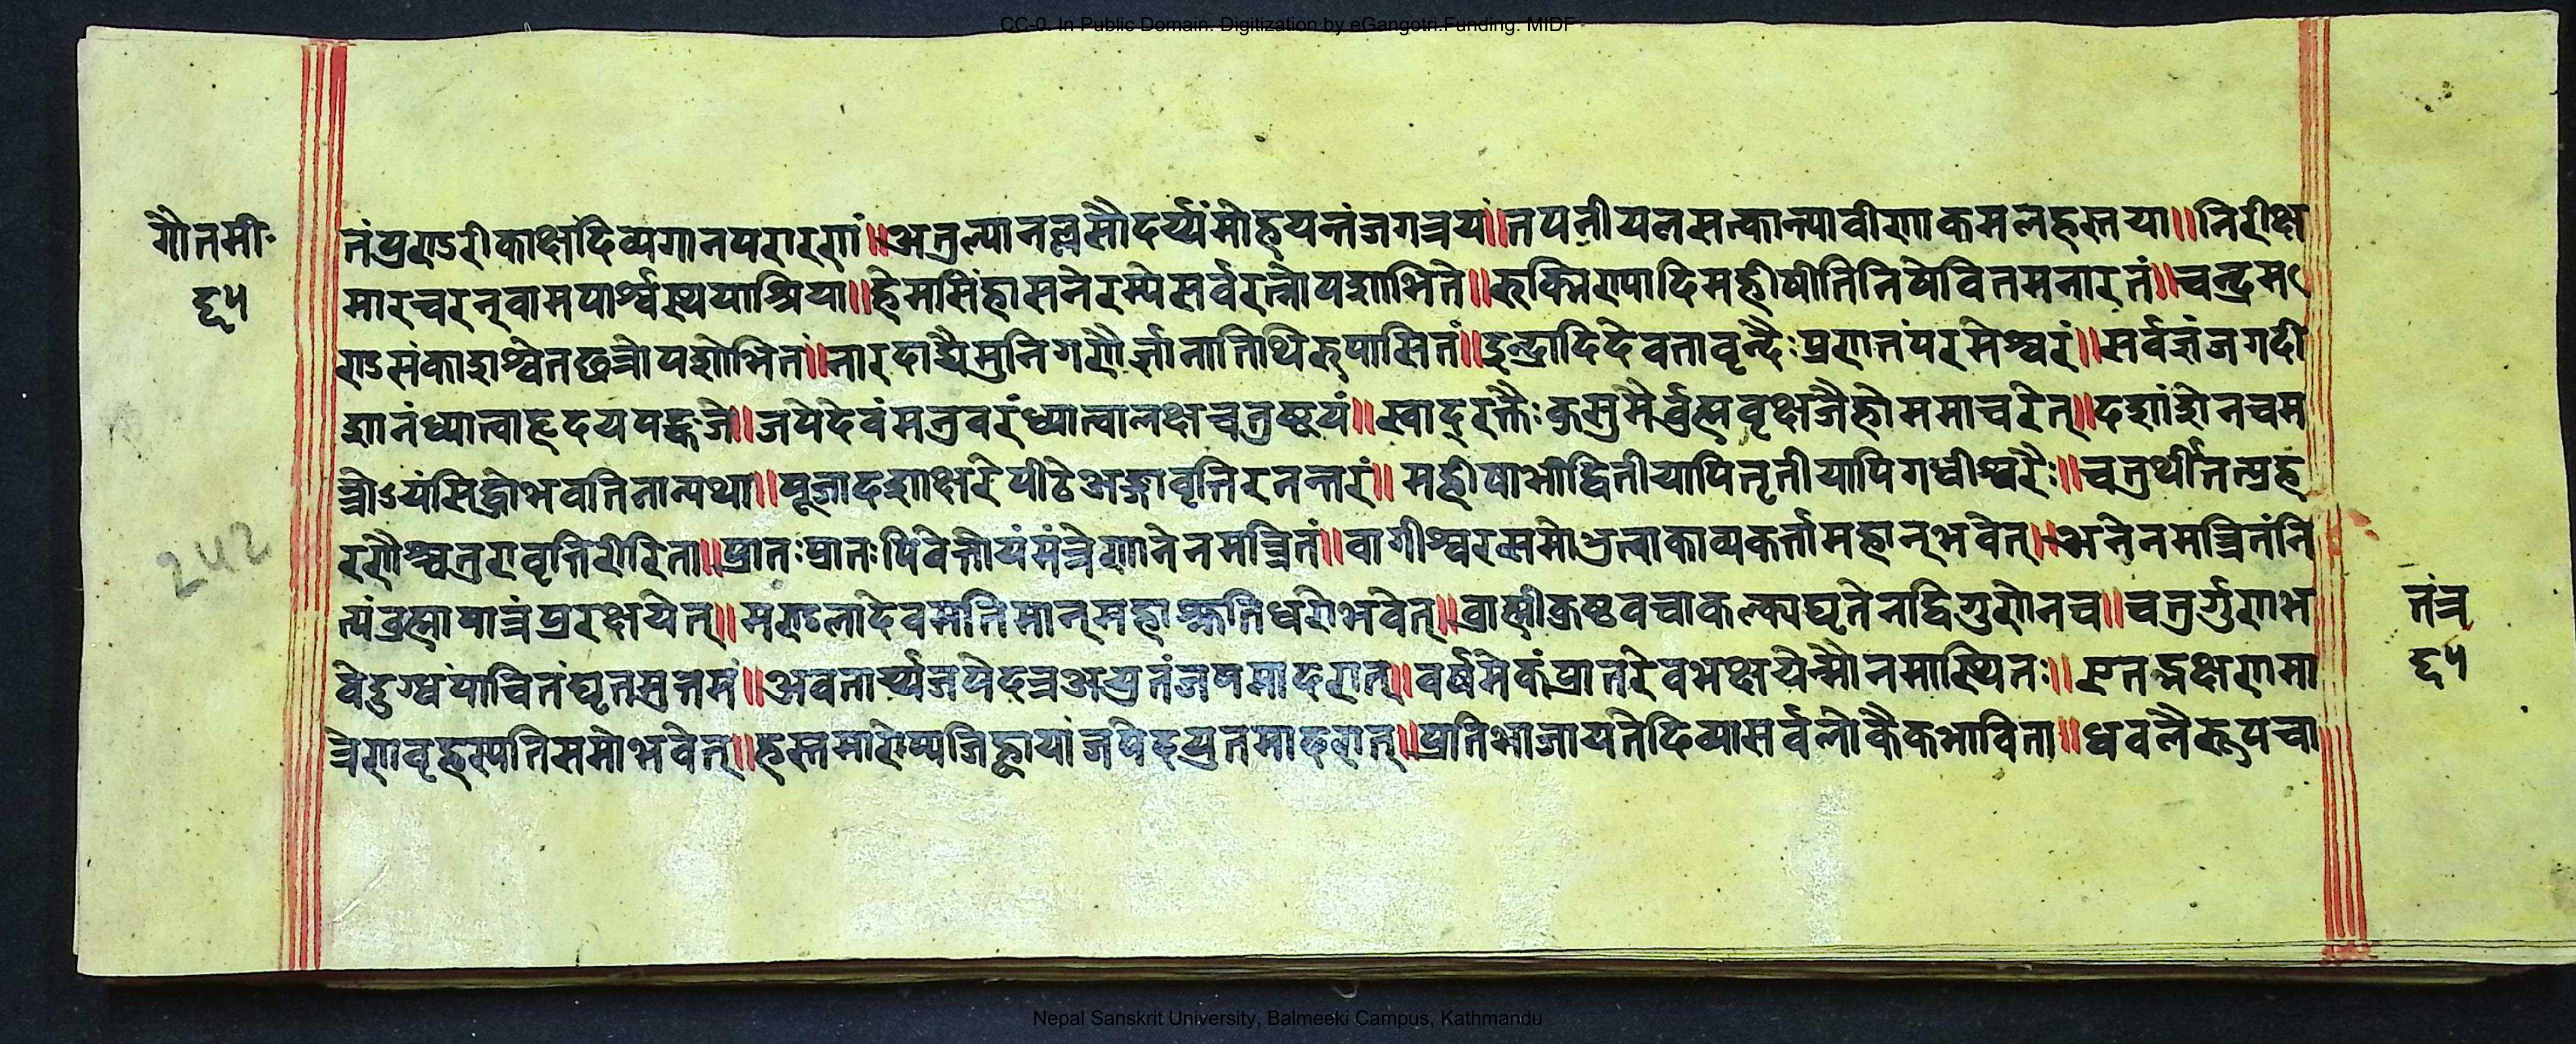 CC-0. In Public Domain. Digitization by eGangotri.Funding. MIDF
गौतमी॰
६५
तंपुराऽरीकाक्षंदिव्यगानपरारगां॥अतुल्यानल्लसौदर्य्यंमोहयन्तंजगत्रयं॥तपनीयलसत्कान्त्यावीणाकमलहस्तया॥निरीक्ष
मारचरन्वामपार्श्वस्थयाश्रिया॥हेमसिंहासनेरम्येसर्वरत्नोपशोभिते॥रुक्मिराण्यादिमहीषीतिनिषेवितमनारतं॥चन्द्रम
राऽसंकाशश्वेतछत्रोपशोभितं॥नारदाद्यैमुनिगणैर्ज्ञानातिथिरुपासितं॥इन्द्रादिदेवतावृन्दैःप्रणतंपरमेश्वरं॥सर्वज्ञंजगदी
शानंध्यात्वाहृदयपङ्कजे॥जपेदेवंमत्रवरंध्यात्वालक्षचतुष्टयं॥स्वादुरक्तैःकुसुमैर्ब्रुह्मवृक्षजैर्होममाचरेत्॥दशांशेनचम
त्रोऽयंसिद्धोभवतिनान्यथा॥पूजादशाक्षरेपीठेअङ्गावृतिरनन्तरं॥महीषाभीद्वितीयापितृतीयापिगधीश्वरैः॥चतुर्थीतत्प्रह
रणैश्चतुरावृत्तिरीरिता॥प्रातःप्रातःपिबेत्तोयंमंत्रेणानेनमन्त्रितं॥वागीश्वरसमोभुत्वाकाव्यकर्त्तामहान्भवेत्॥अनेनमन्त्रितंनि
त्यंब्रह्मीपात्रंप्ररक्षयेत्॥मण्डलादेवमतिमान्महाश्रुतिधरोभवेत्॥ब्राह्मीकुष्ठवचाकल्क्यघृतेनद्विगुणेनच॥चतुर्गुणाभ
वेदुग्धंपाचितंघृतमुत्तमं॥अवतार्य्यजपेदत्रअयुतंजपमादरात्॥वर्षमेकंप्रातरेवभक्षयेन्मौनमास्थितः॥एतद्भक्षणमा
त्रेणवृहस्पतिसमोभवेत्॥हस्तमारोप्यजिह्वायांजपेदयुतमादरात्॥प्रतिभाजायतेदिव्यासर्वलोकैकभाविता॥धवलैरुपचा
242
तंत्र
६५
Nepal Sanskrit University, Balmeeki Campus, Kathmandu